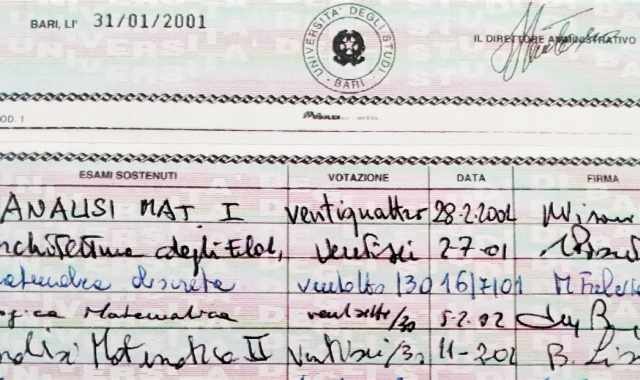 BARI, LI' 31/01/2001
UNIVERSITA' DEGLI STUDI BARI
IL DIRETTORE AMMINISTRATIVO
OD. 1
ESAMI SOSTENUTI VOTAZIONE DATA FIRMA
ANALISI MAT. I ventiquattro 28-2-2001
rchitettura degli Elab. ventisei 2-7-01
atematica discreta ventotto/30 16/7/01
ogica Matematica ventisette/30 5-2-02
nalisi Matematica II ventisei/30 11-2-02 B.